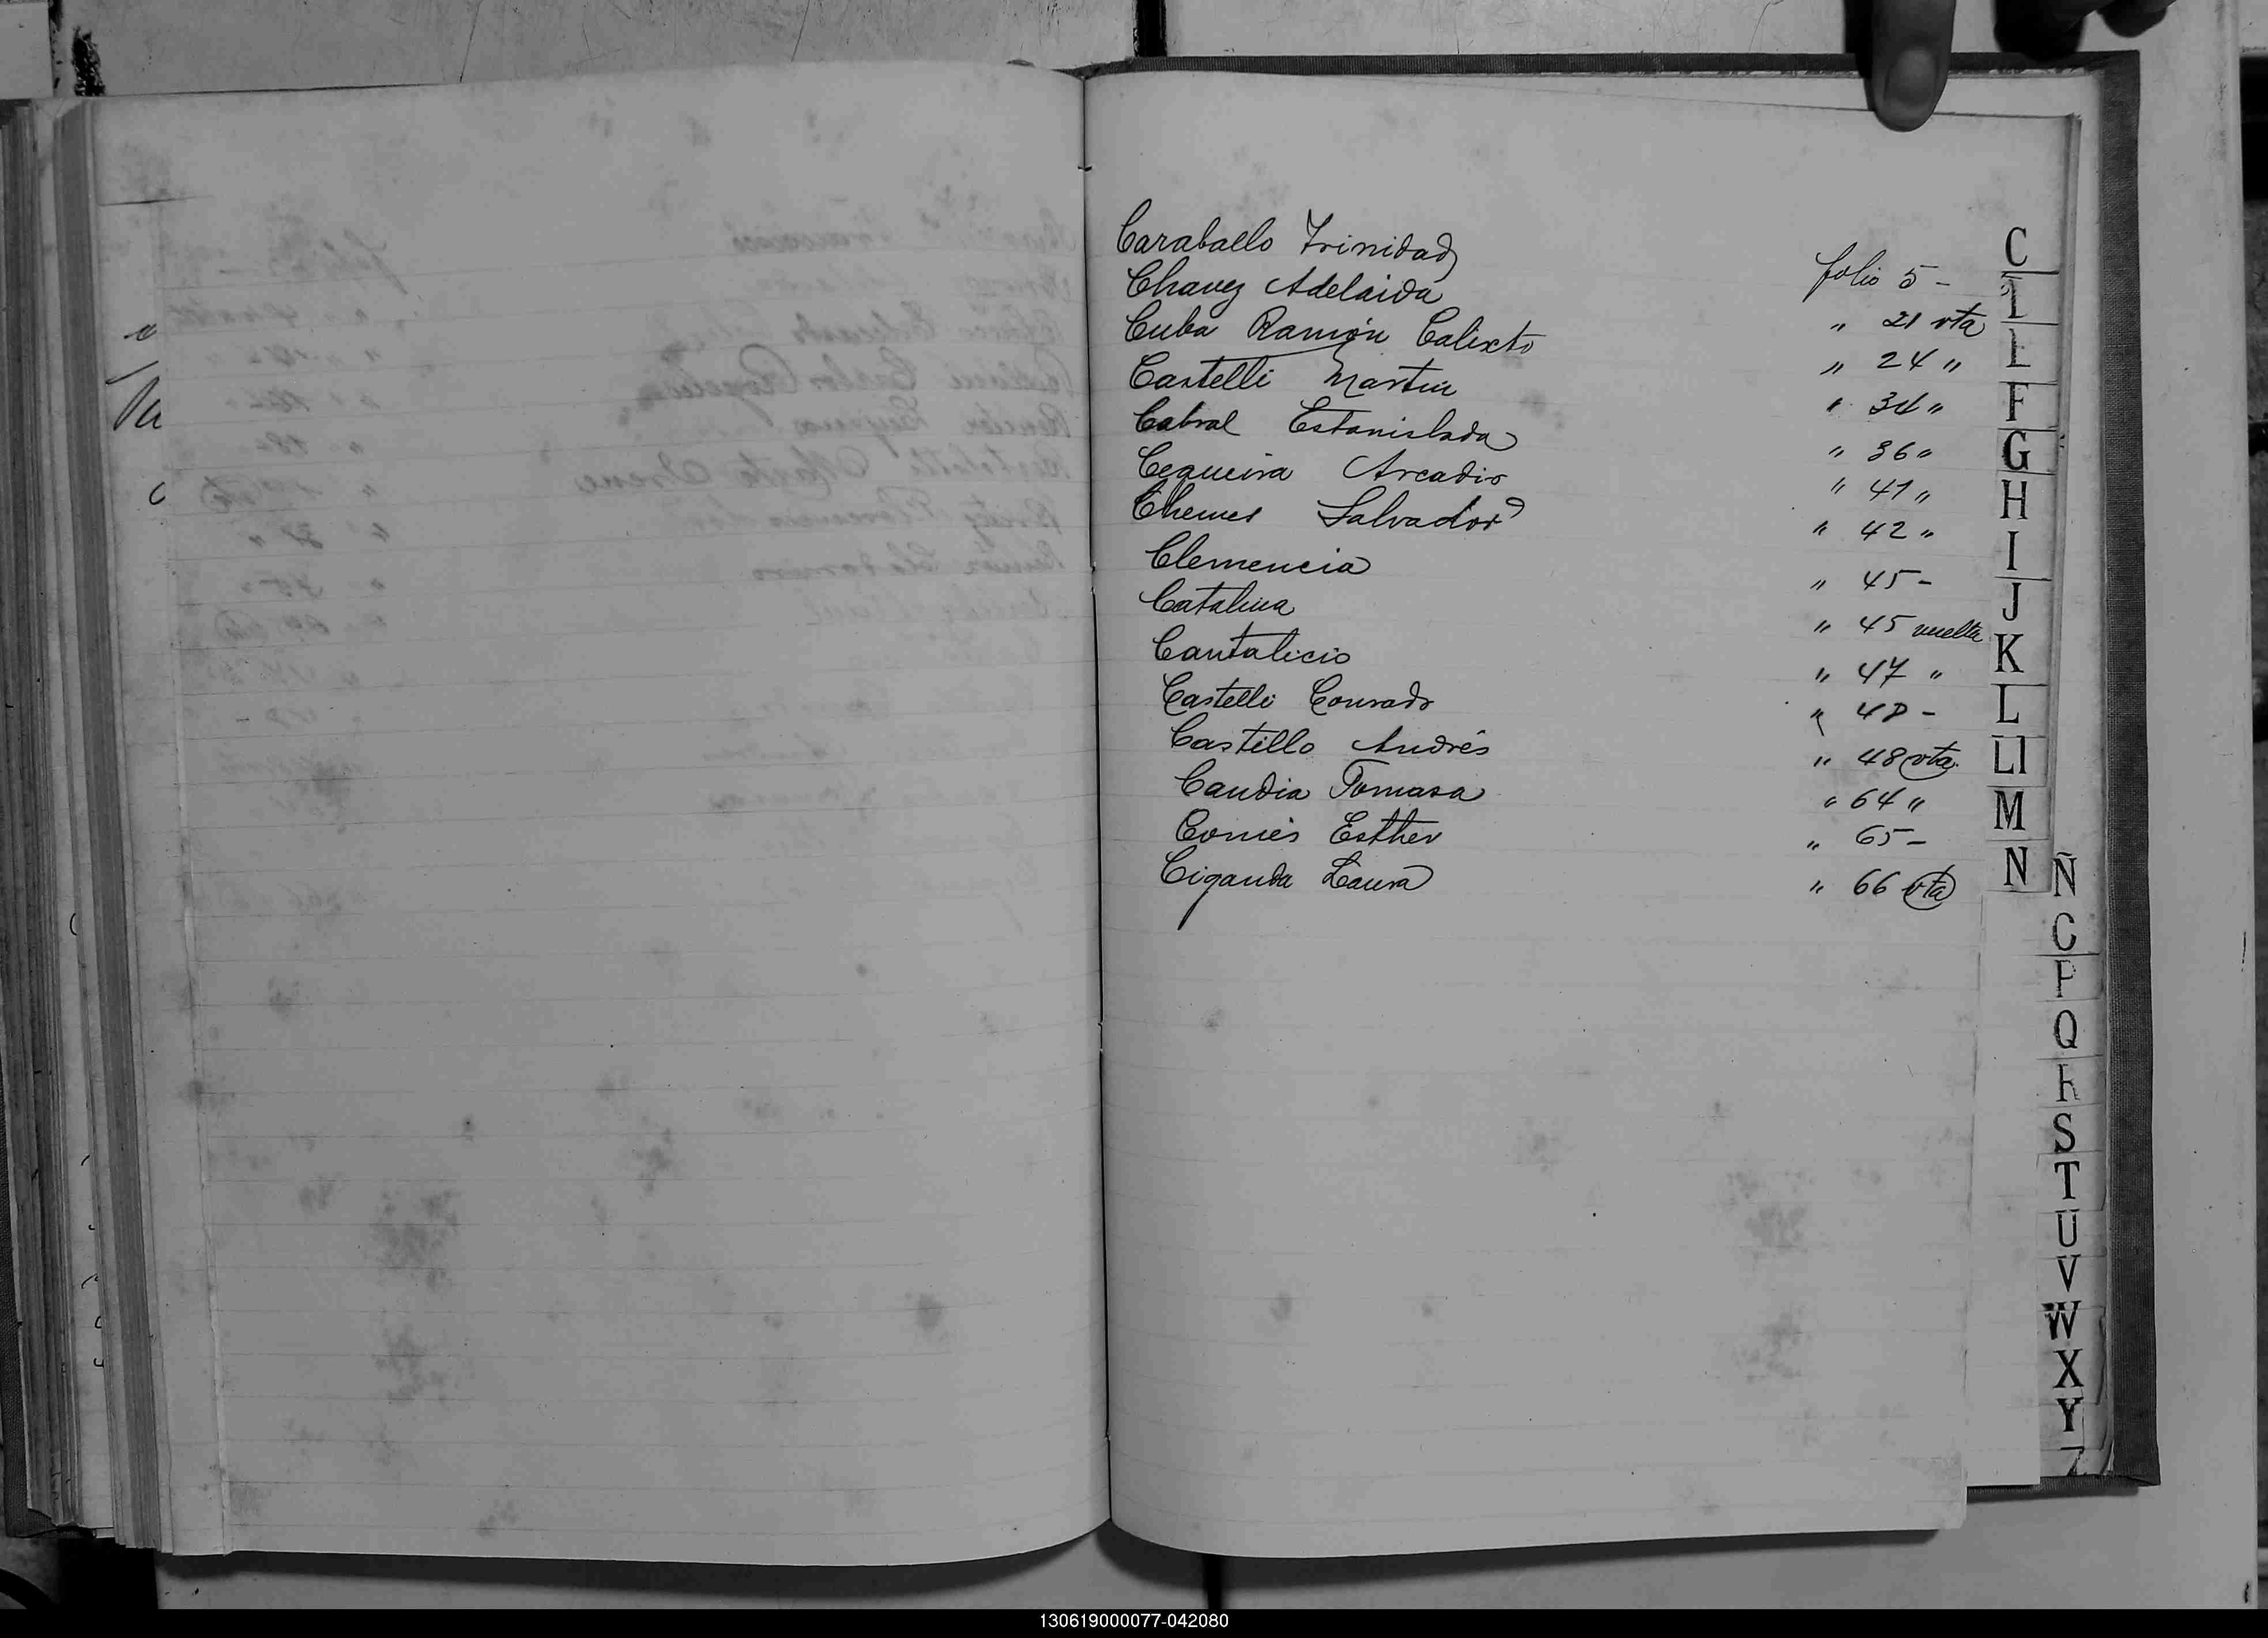 Caraballo Trinidad folio 5 -
Chavez Adelaida " 21 vta
Cuba Ramón Calixto " 24 "
Castelli Martin " 34 "
Cabral Estanislada " 36 "
Cequeira Arcadio " 41 "
Chemes Salvador " 42 "
Clemencia " 45 -
Catalina " 45 vuelta
Cantalicio " 47 "
Castelli Conrado " 48 -
Castillo Andrés " 48 vta.
Candia Tomasa " 64 "
Comés Esther " 65 -
Ciganda Laura " 66 vta
C
F
G
H
I
J
K
L
Ll
M
N
Ñ
P
Q
S
T
U
V
W
X
Y
Z
130619000077-042080